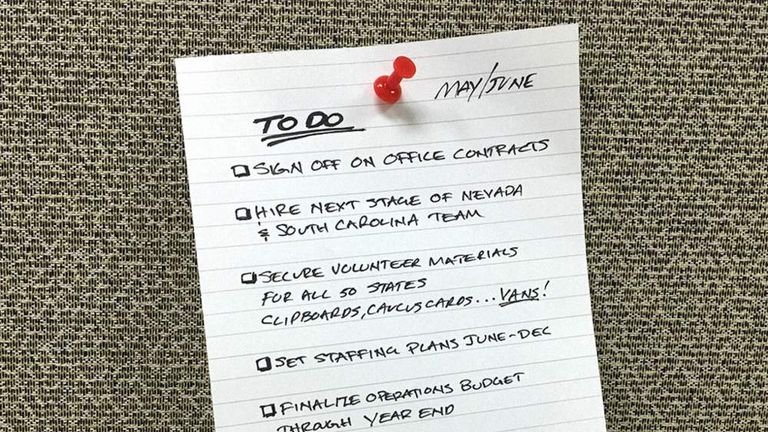 MAY/JUNE
TO DO
SIGN OFF ON OFFICE CONTRACTS
HIRE NEXT STAGE OF NEVADA
& SOUTH CAROLINA TEAM
SECURE VOLUNTEER MATERIALS
FOR ALL 50 STATES
CLIPBOARDS, CAUCUS CARDS...VANS!
SET STAFFING PLANS JUNE-DEC
FINALIZE OPERATIONS BUDGET
THROUGH YEAR END